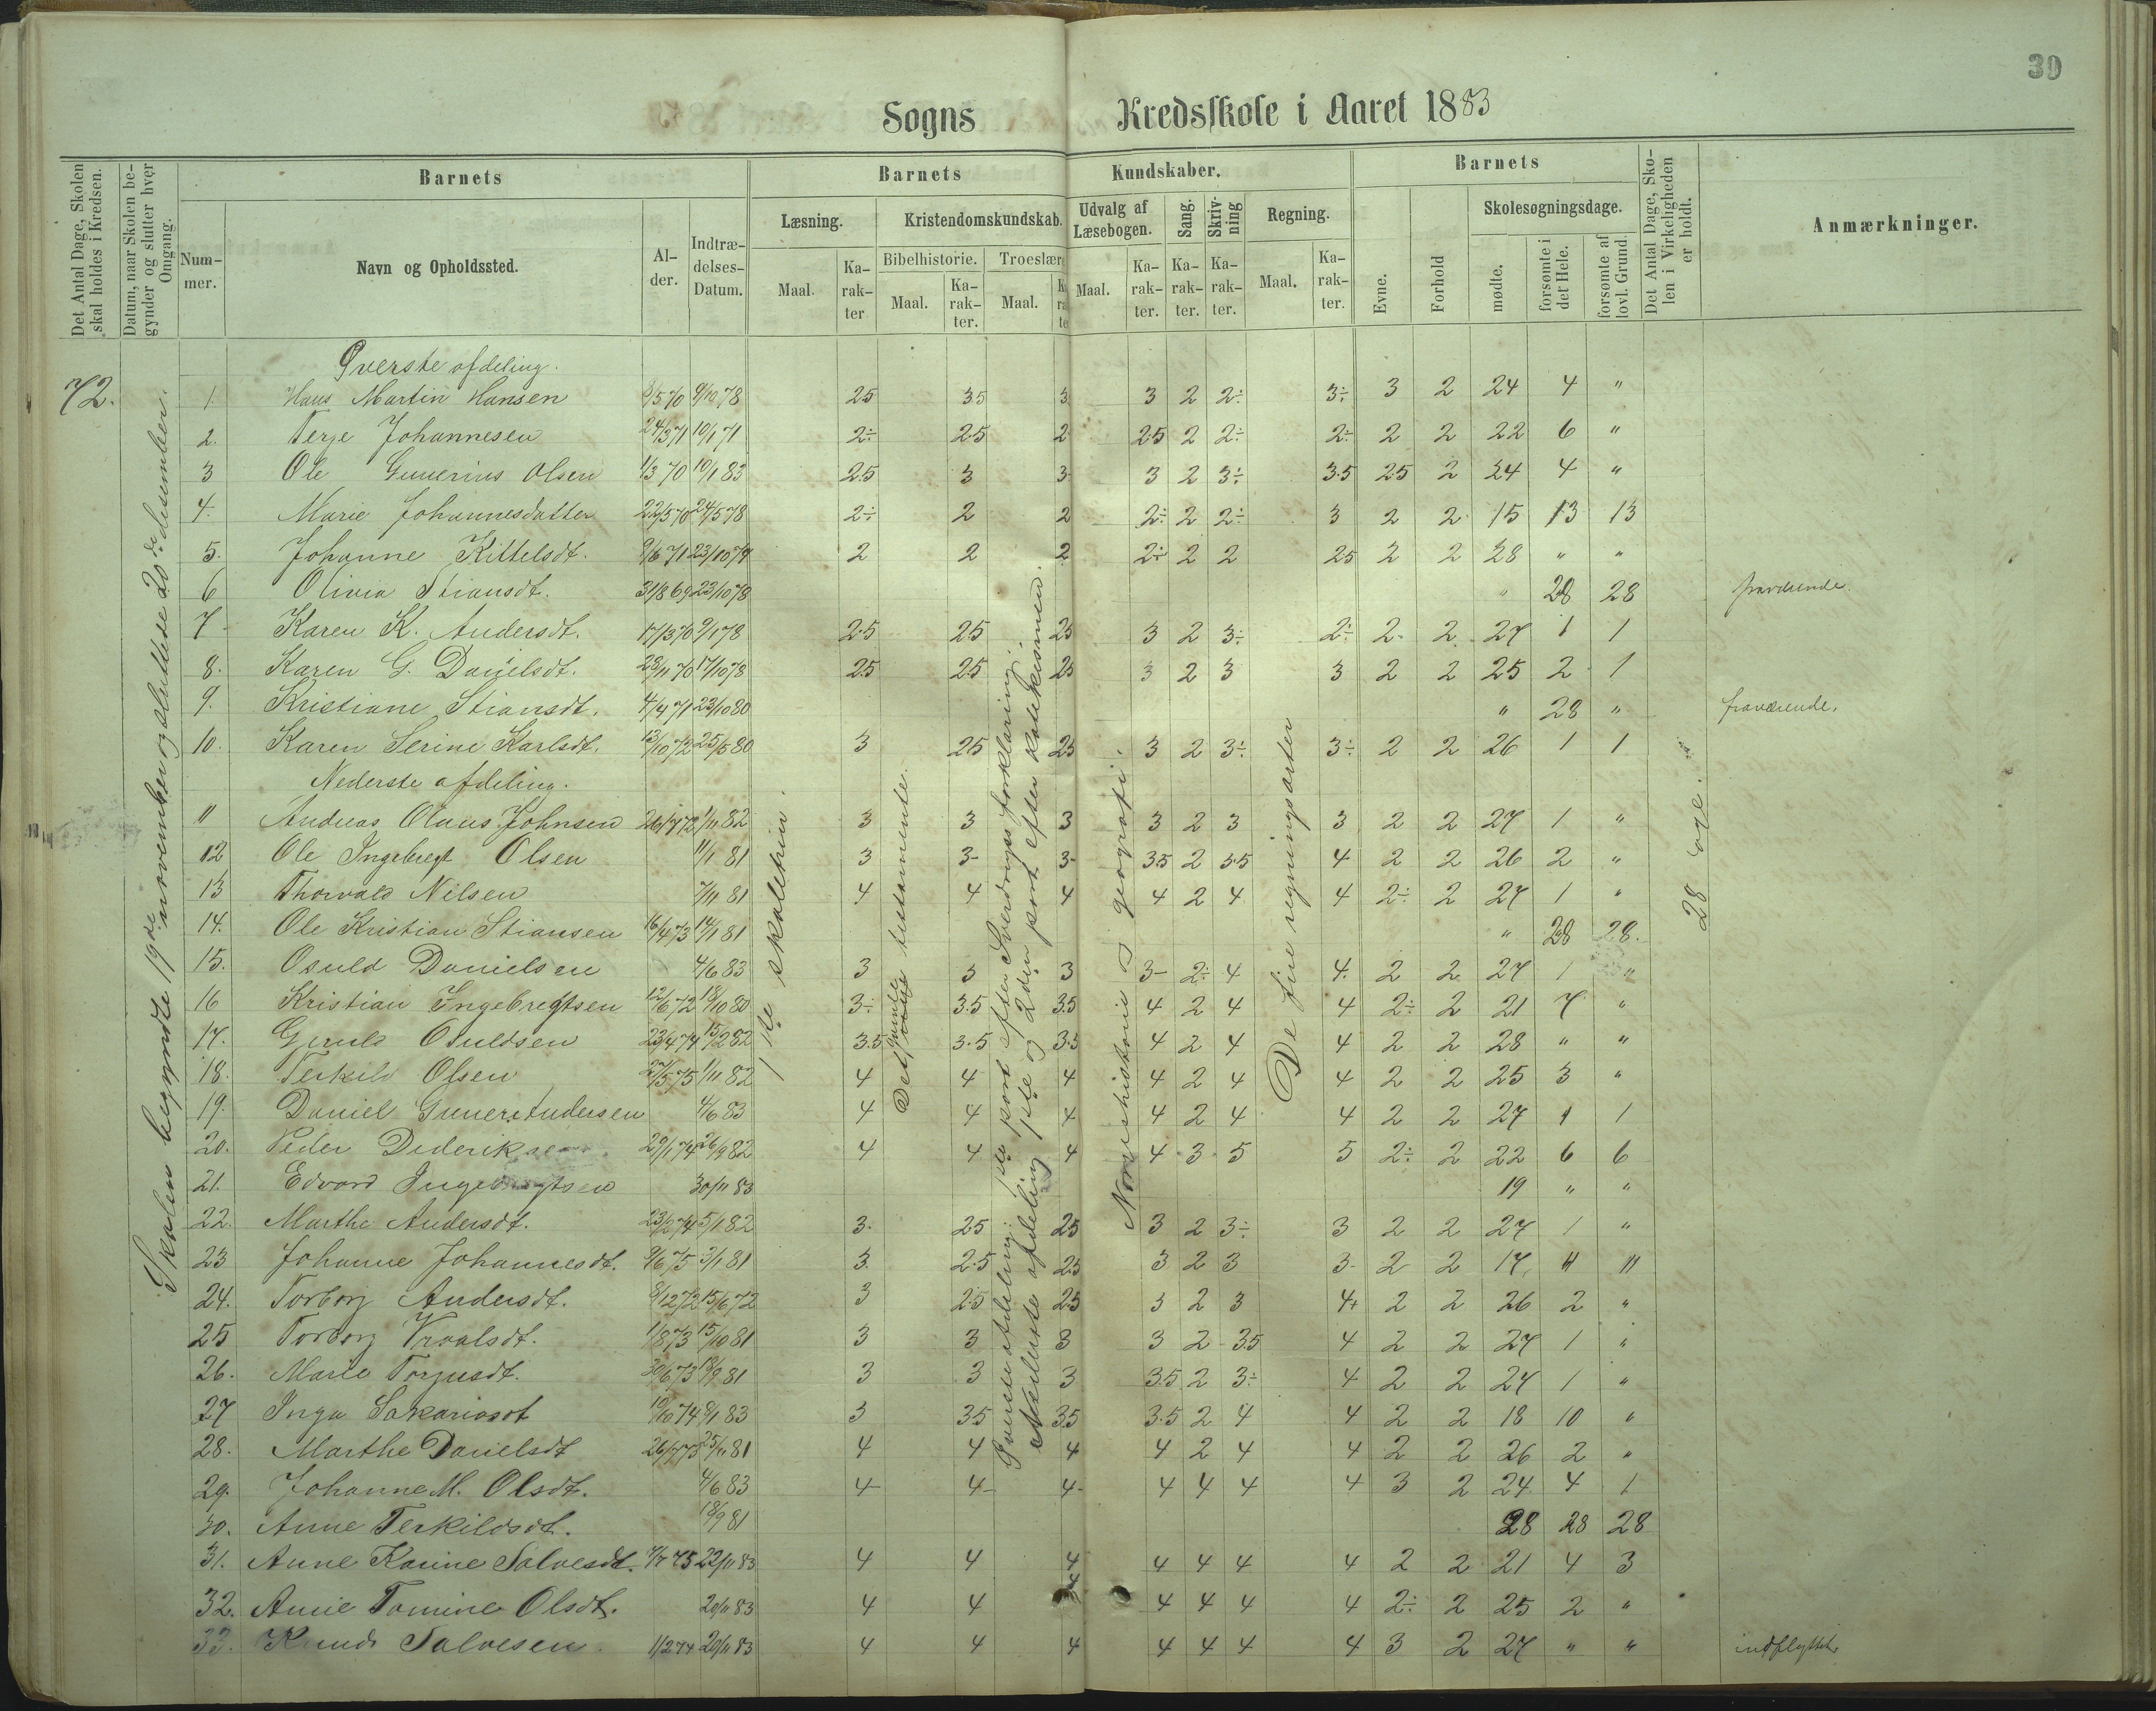 39
Sogns Kredsskole i Aaret 1883
Det Antal Dage, Skolen skal holdes i Kredsen.
Datum, naar Skolen begynder og slutter hver Omgang.
Nummer.
Barnets
Navn og Opholdssted.
Alder.
Indtrædelses-Datum.
Barnets Kundskaber.
Læsning.
Maal.
Karakter
Kristendomskundskab.
Bibelhistorie.
Maal.
Karakter.
Troeslær
Maal.
Udvalg af Læsebogen.
Maal.
Karakter.
Sang.
Karakter.
Skrivning
Karakter.
Regning.
Maal.
Karakter.
Barnets
Evne.
Forhold
Skolesøgningsdage.
mødte.
forsømte i det Hele.
forsømte af lovl. Grund.
Det Antal Dage, Skolen i Virkeligheden er holdt.
Anmærkninger.
72.
Skolen begyndte 19de november og sluttede 20de desember.
1ste skoletrin.
Det gamle testamente.
Øverste afdeling: 1ste part efter Sverdrups forklaring;
Nederste afdeling 1ste og 2den part efter katekismen.
Norgeshistorie og geografi.
De fire regningsarter
28 dage.
Øverste afdeling.
1. Hans Martin Hansen 8/5 70 9/10 78 2.5 3.5 3 3 2 2÷ 3÷ 3 2 24 4 "
2. Terje Johannesen 24/3 71 10/1 71 2÷ 2.5 2 2.5 2 2÷ 2÷ 2 2 22 6 "
3 Ole Gunerius Olsen 1/3 70 10/1 83 2.5 3 3 3 2 3÷ 3.5 2.5 2 24 4 "
4. Marie Johannesdatter 22/5 70 24/5 78 2÷ 2 2 2÷ 2 2÷ 3 2 2 15 13 13
5. Johanne Kittelsdt. 9/6 71 23/10 79 2 2 2 2÷ 2 2 2.5 2 2 28 " "
6 Olivia Stiansdt. 31/8 69 23/10 78 " 28 28 fraværende.
7 Karen K. Andersdt. 17/3 70 9/1 78 2.5 2.5 2.5 3 2 3÷ 2÷ 2 2 27 1 1
8. Karen G. Danielsdt. 28/11 70 17/10 78 2.5 2.5 2.5 3 2 3 3 2 2 25 2 1
9. Kristiane Stiansdt. 4/4 71 23/10 80 " 28 " fraværende.
10. Karen Serine Karlsdt. 13/10 72 25/5 80 3 2.5 2.5 3 2 3÷ 3÷ 2 2 26 1 1
Nederste afdeling.
11 Andreas Olaus Johnsen 26/7 72 1/11 82 3 3 3 3 2 3 3 2 2 27 1 "
12 Ole Ingebregt Olsen 11/1 81 3 3- 3- 3.5 2 3.5 4 2 2 26 2 "
13 Thorvald Nilsen 7/11 81 4 4 4 4 2 4 4 2÷ 2 27 1 "
14. Ole Kristian Stiansen 16/4 73 14/1 81 " 28 28.
15. Osuld Danielsen 4/6 83 3 3 3 3- 2÷ 4 4. 2 2 27 1 "
16 Kristian Ingebregtsen 12/6 72 18/10 80 3÷ 3.5 3.5 4 2 4 4 2÷ 2 21 7 "
17. Gjeruld Osuldsen 23/4 74 15/2 82 3.5 3.5 3.5 4 2 4 4 2 2 28 " "
18. Terkild Olsen 27/5 75 1/11 82 4 4 4 4 2 4 4 2 2 25 3 "
19. Daniel Guner Andersen 4/6 83 4 4 4 4 2 4 4 2 2 27 1 1
20. Peder Dideriksen 29/1 74 26/9 82 4 4 4 4 3 5 5 2÷ 2 22 6 6
21. Edvard Ingebregtsen 30/11 83 19 " "
22. Marthe Andersdt. 23/2 74 5/1 82 3. 2.5 2.5 3 2 3÷ 3 2 2 27 1 "
23 Johanne Johannesdt. 9/6 75 3/1 81 3. 2.5 2.5 3 2 3 3- 2 2 17 11 11
24. Torborg Andersdt. 8/12 72 15/6 72 3 2.5 2.5 3 2 3 4+ 2 2 26 2 "
25 Torborg Vroalsdt. 1/8 73 15/10 81 3 3 3 3 2 3.5 4 2 2 27 1 "
26. Marie Torjusdt. 30/6 73 19/9 81 3 3 3 3.5 2 3÷ 4 2 2 27 1 "
27 Inga Sakariasdt 19/10 74 8/1 83 3 3.5 3.5 3.5 2 4 4 2 2 18 10 "
28. Marthe Danielsdt 26/7 73 25/11 81 4 4 4 4 2 4 4 2 2 26 2 "
29. Johanne M. Olsdt. 4/6 83 4- 4- 4- 4 4 4 4 3 2 24 4 1
30. Anne Terkildsdt. 19/9 81 28 28 28
31. Anne Karine Salvesdt. 7/7 75 22/11 83 4 4 4 4 4 4 4 2 2 21 4 3
32. Anne Tomine Olsdt. 20/11 83 4 4 4 4 4 4 4 2÷ 2 25 2 "
33. Knud Salvesen. 1/2 74 20/11 83 4 4 4 4 4 4 4 3 2 27 " " indflyttet